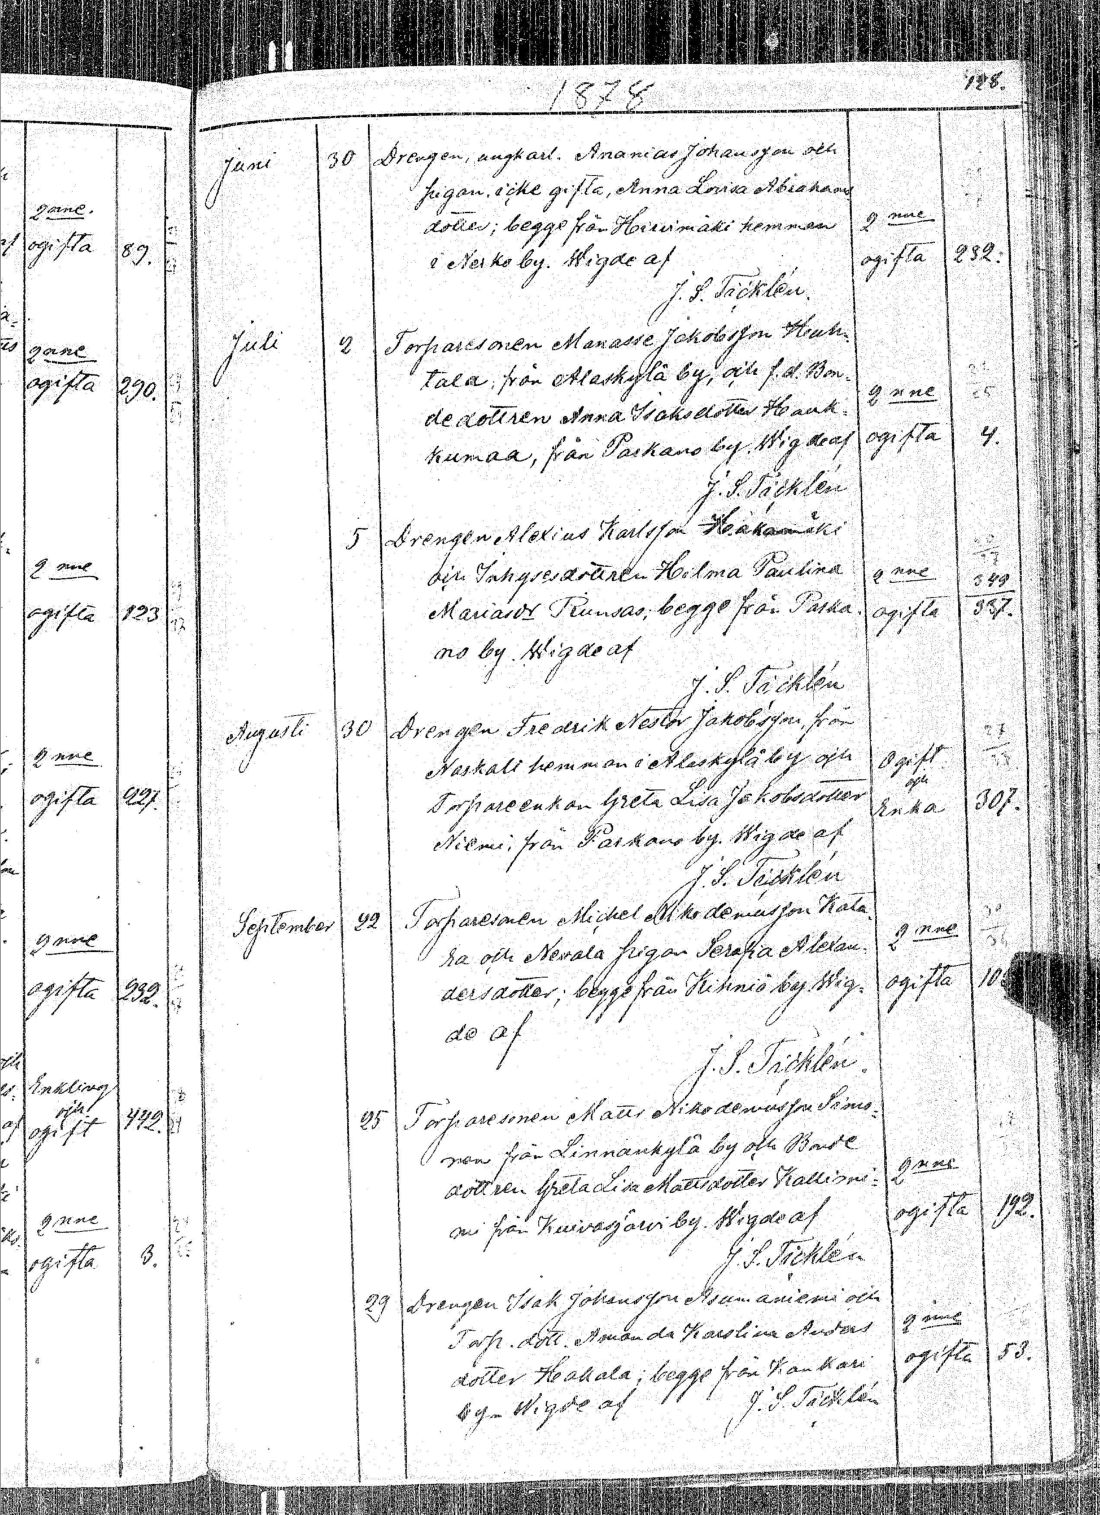 1878
128.
Juni 30 Drengen, ungkarl. Ananias Johansson och
pigan, icke gifta, Anna Lovisa Abrahams
dotter; begge från Hirvimäki hemman 2 nne
i Nerko by. Wigde af ogifta 232.
J. S. Täcklén.
Juli 2 Torparesonen Manasse Jakobsson Huh-
tala, från Alaskylä by, och f. d. Bon-
dedottren Anna Isaksdotter Hauk- 2 nne
kumaa, från Parkano by. Wigde af ogifta 4.
J. S. Täcklén
5 Drengen Alexius Karlsson Hakamäki
och Inhysesdottren Hilma Paulina 2 nne 349
Mariasdr Runsas; begge från Parka- ogifta 337.
no by. Wigde af
J. S. Täcklén
Augusti 30 Drengen Fredrik Nestor Jakobsson, från
Naskali hemman i Alaskylä by och Ogift
och
Torpareenkan Greta Lisa Jakobsdotter Enka 307.
Niemi, från Parkano by. Wigde af
J. S. Täcklén
September 22 Torparesonen Michel Nikodemusson Kata-
ra och Nevala pigan Serafia Alexan- 2 nne
dersdotter; begge från Kihniö by. Wig- ogifta
de af
J. S. Täcklén.
25 Torparesonen Matts Nikodemusson Simo-
nen från Linnankylä by och Bonde
dottren Greta Lisa Mattsdotter Kallioni- 2 nne
mi från Kuivasjärvi by. Wigde af ogifta 192.
J. S. Täcklén
29 Drengen Isak Johansson Asumaniemi och
Torp. dott. Amanda Karolina Anders 2 nne
dotter Hakala; begge från Kankari ogifta 53.
by. Wigde af J. S. Täcklén
2 nne.
ogifta 89.
2 nne
ogifta 290.
2 nne
ogifta 123
2 nne
ogifta 227.
2 nne
ogifta 232.
Enkling
och
ogift 442.
2 nne
ogifta 3.